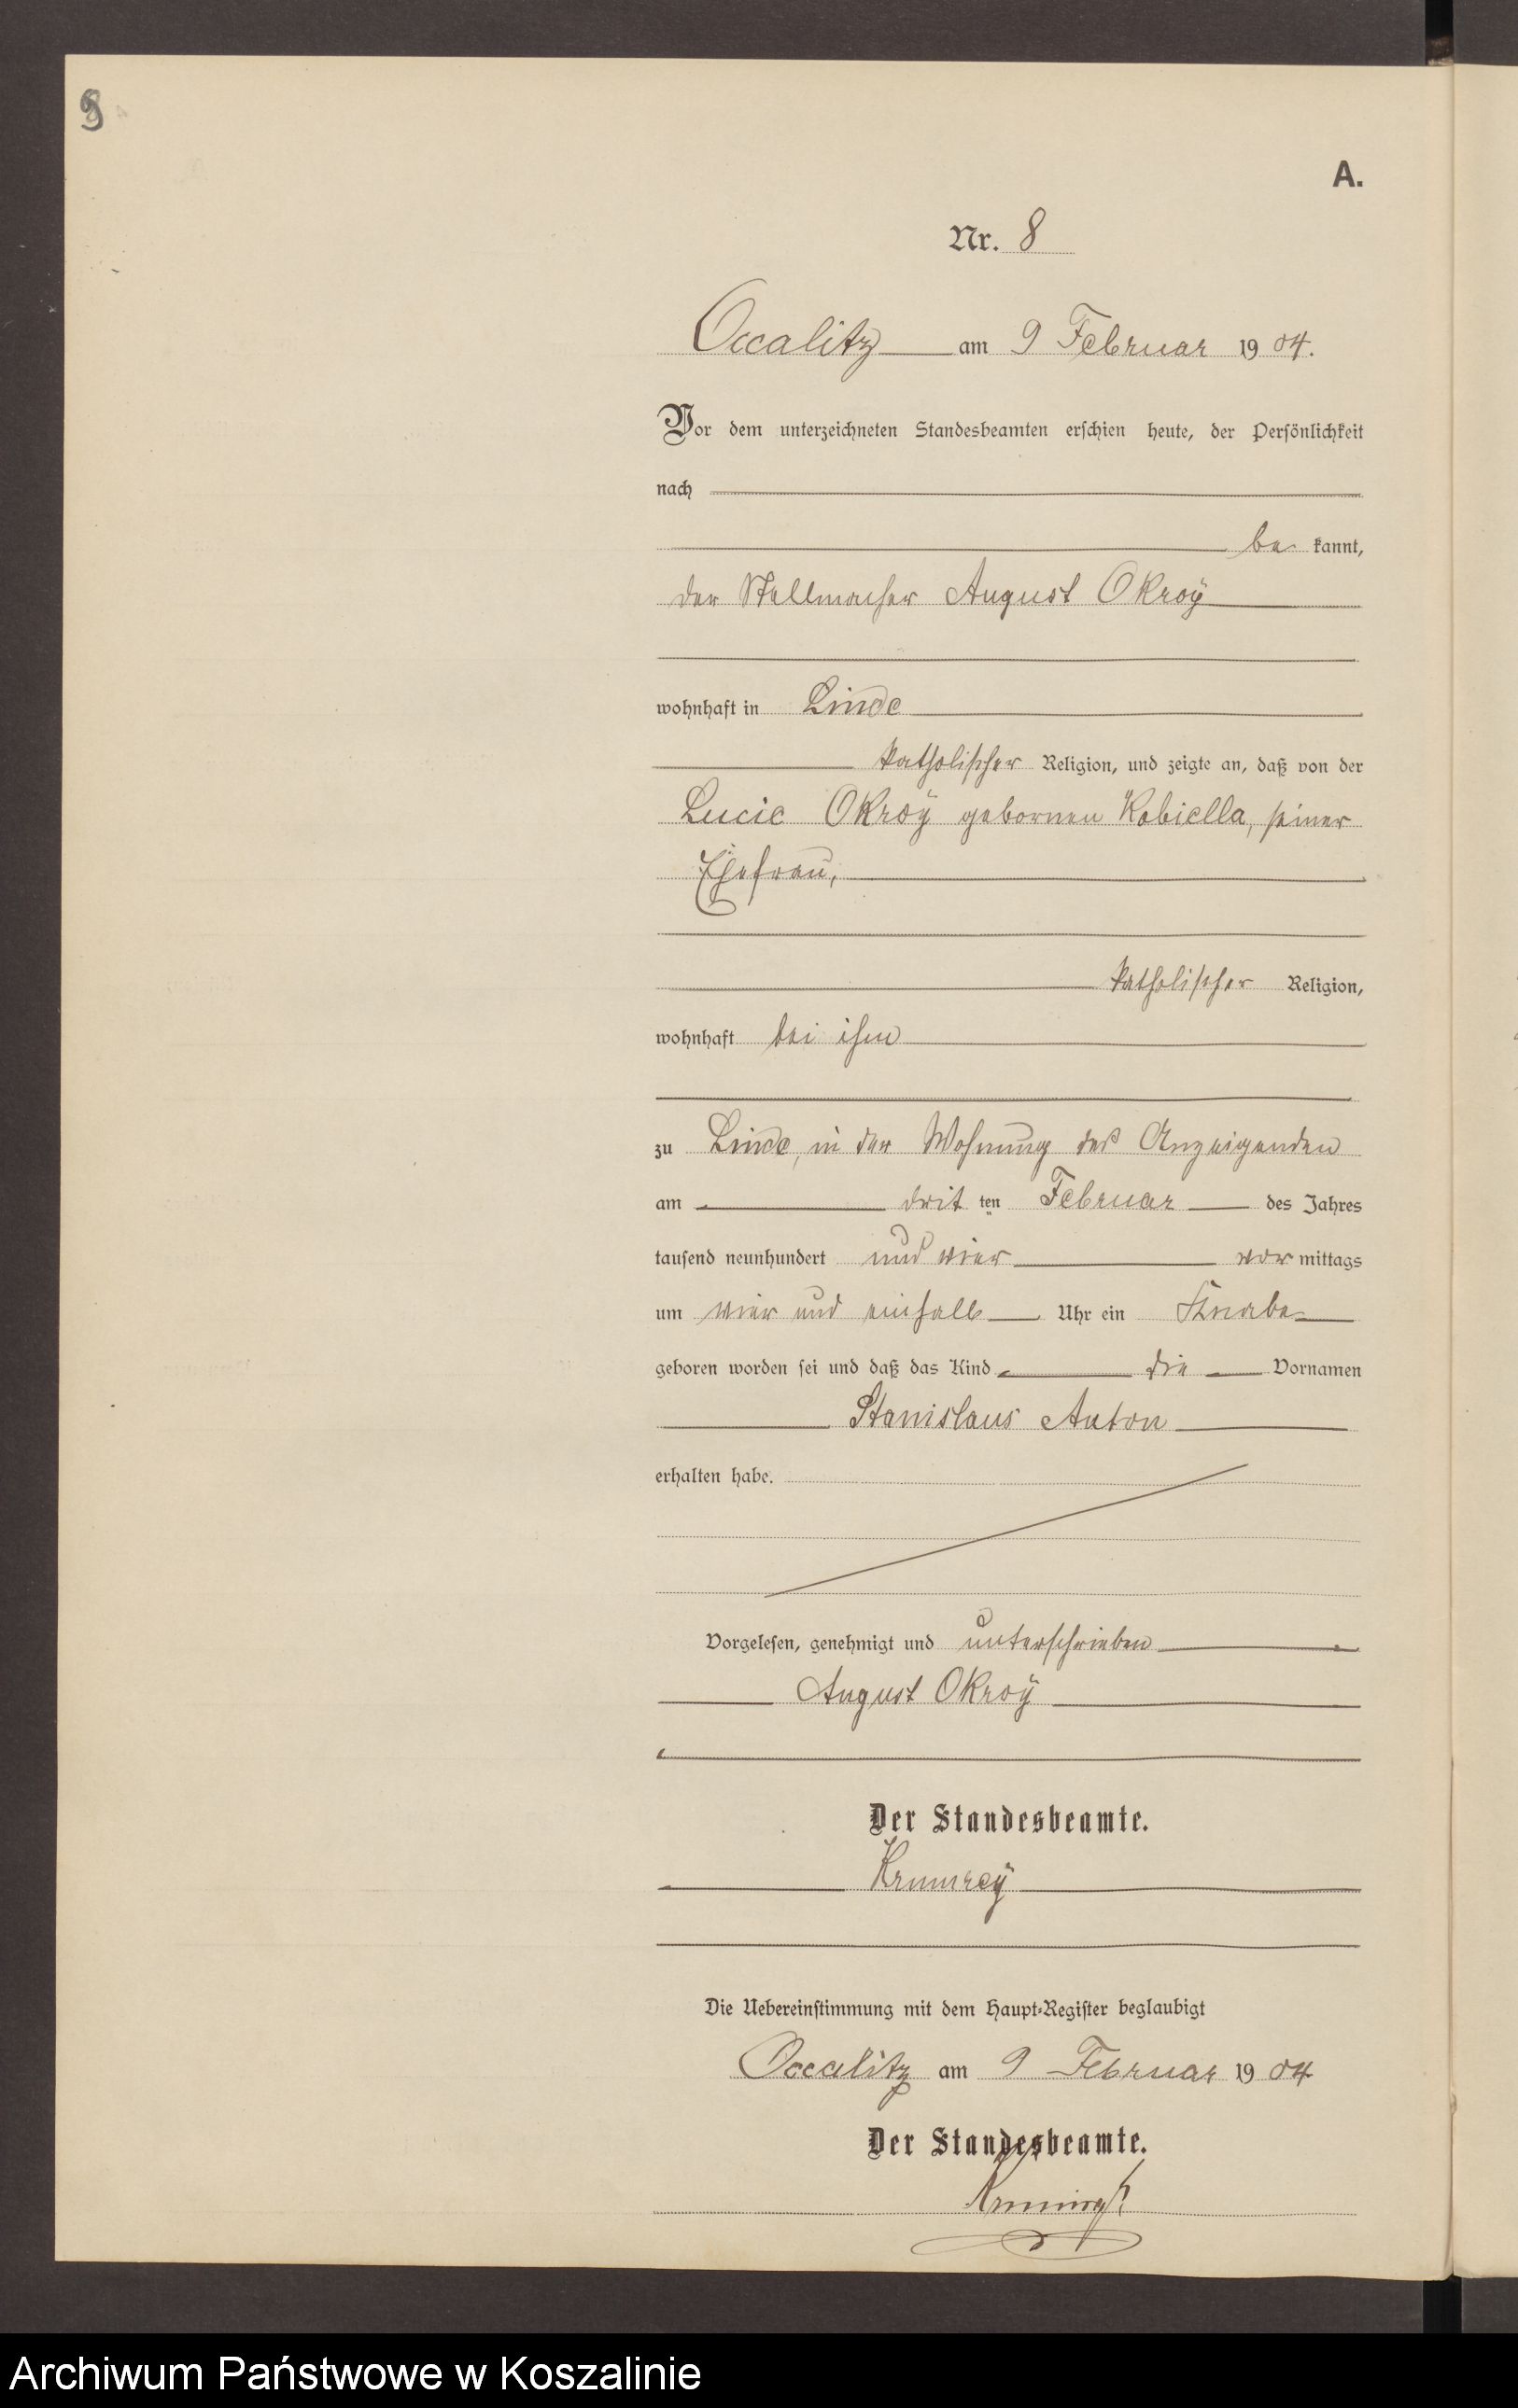 A.
Nr. 8
Occalitz am 9 Februar 1904.
Vor dem unterzeichneten Standesbeamten erschien heute, der Persönlichkeit
nach
be kannt,
der Stellmacher August Okroÿ
wohnhaft in Linde
katholischer Religion, und zeigte an, daß von der
Lucie Okroÿ gebornen Kobiella, seiner
Ehefrau,
katholischer Religion,
wohnhaft bei ihm
zu Linde, in der Wohnung des Anzeigenden
am dritten Februar des Jahres
tausend neunhundert und vier vor mittags
um vier und einhalb Uhr ein Knabe
geboren worden sei und daß das Kind die Vornamen
Stanislaus Anton
erhalten habe.
Vorgelesen, genehmigt und unterschrieben
August Okroÿ
Der Standesbeamte.
Krumreÿ
Die Uebereinstimmung mit dem Haupt-Register beglaubigt
Occalitz am 9 Februar 1904
Der Standesbeamte.
Archiwum Państwowe w Koszalinie